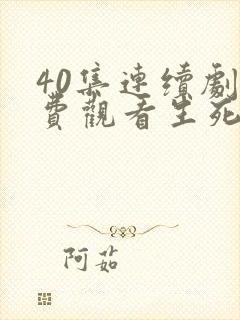 40集連續劇
費觀看生死
阿茹